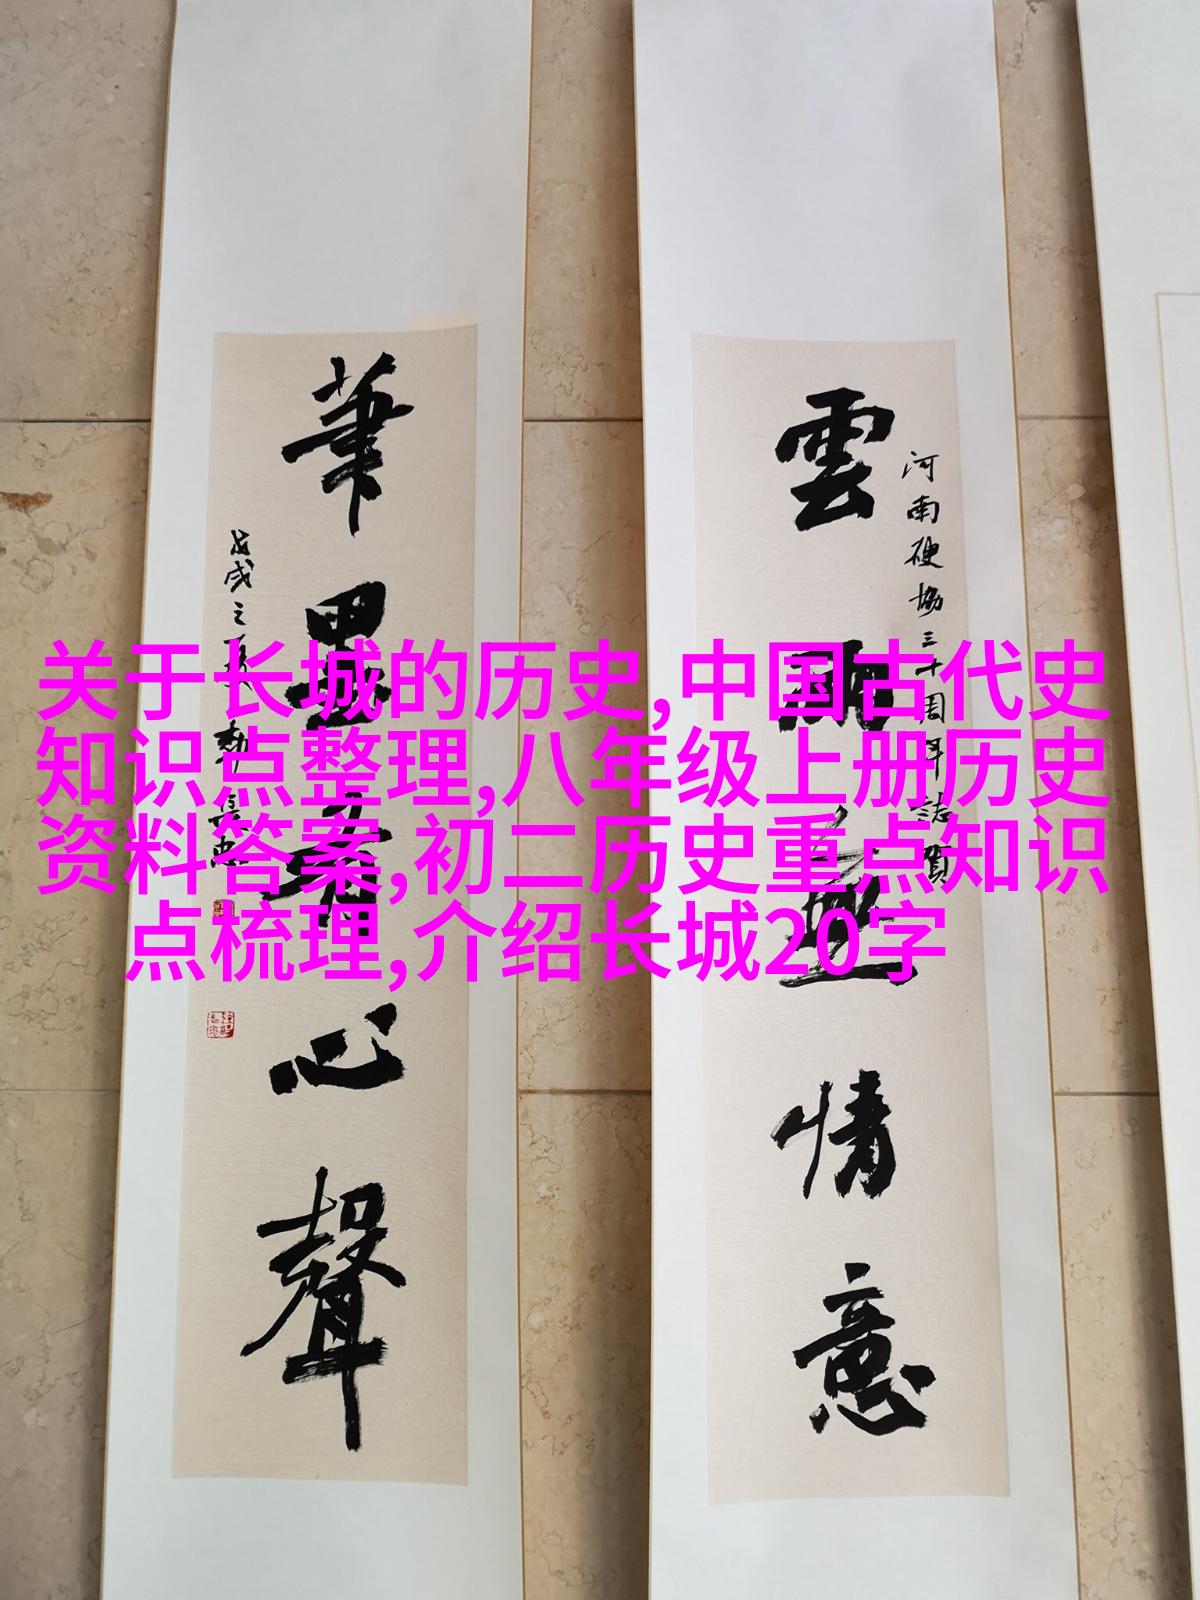 关于长城的历史,中国古代史
知识点整理,八年级上册历史
资料答案,初二历史重点知识
点梳理,介绍长城20字
雲雨無情意
河南硬協三十周年誌賀
筆墨有心聲
戊戌之夏